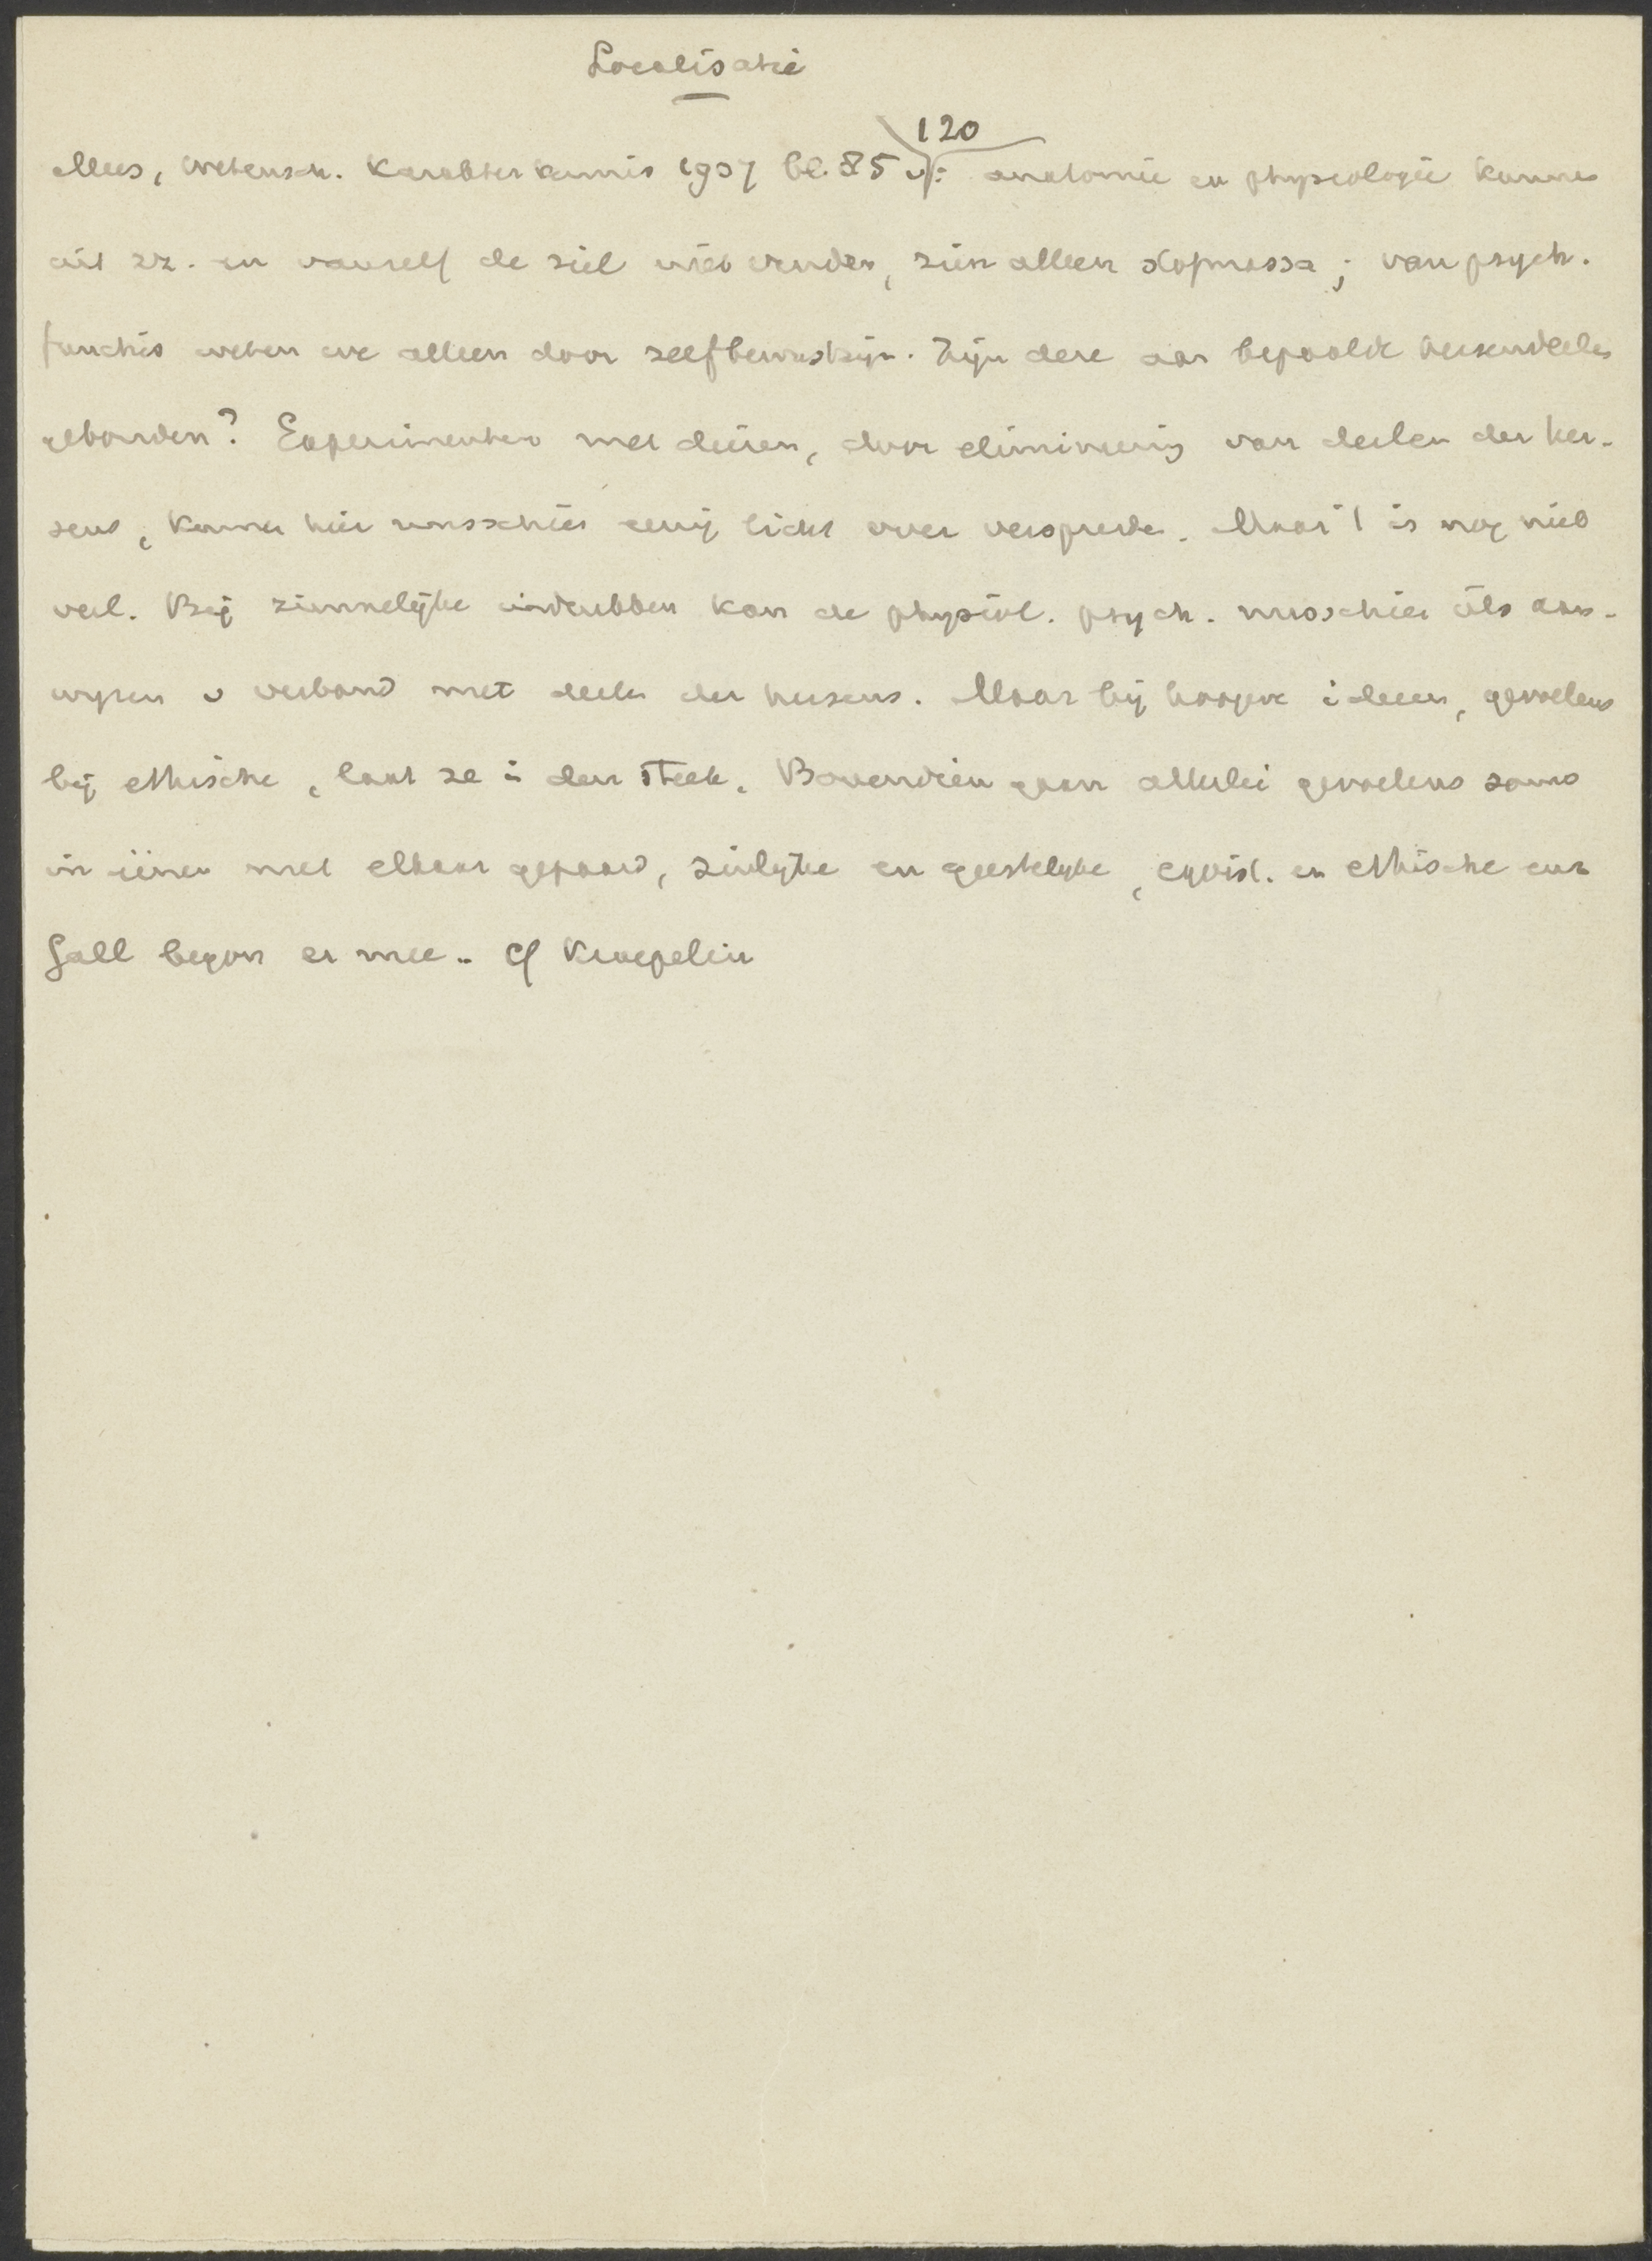 Localisatie
120
Mees, Wetensch. Karakterkennis 1907 bl. 85 v: anatomie en physiologie kunnen
uit zz. en vanzelf de ziel niet vinden, zien alleen stofmassa; van psych.
functies weten we alleen door zelfbewustzijn. Zijn deze aan bepaalde hersendeelen
gebonden? Experimenten met dieren, door eliminering van deelen der her-
sens, kunnen hier misschien eenig licht over verspreiden. Maar 't is nog niet
veel. Bij zinnelijke indrukken kan de physiol. psych. misschien iets aan-
wijzen v verband met deelen der hersens. Maar bij hoogere ideeen, gevoelens
bij ethische, laat ze i den steek. Bovendien gaan allerlei gevoelens soms
in eenen met elkaar gepaard, zinlijke en geestelyke, egoist. en ethische enz
Gall begon er mee. cf Kraepelin